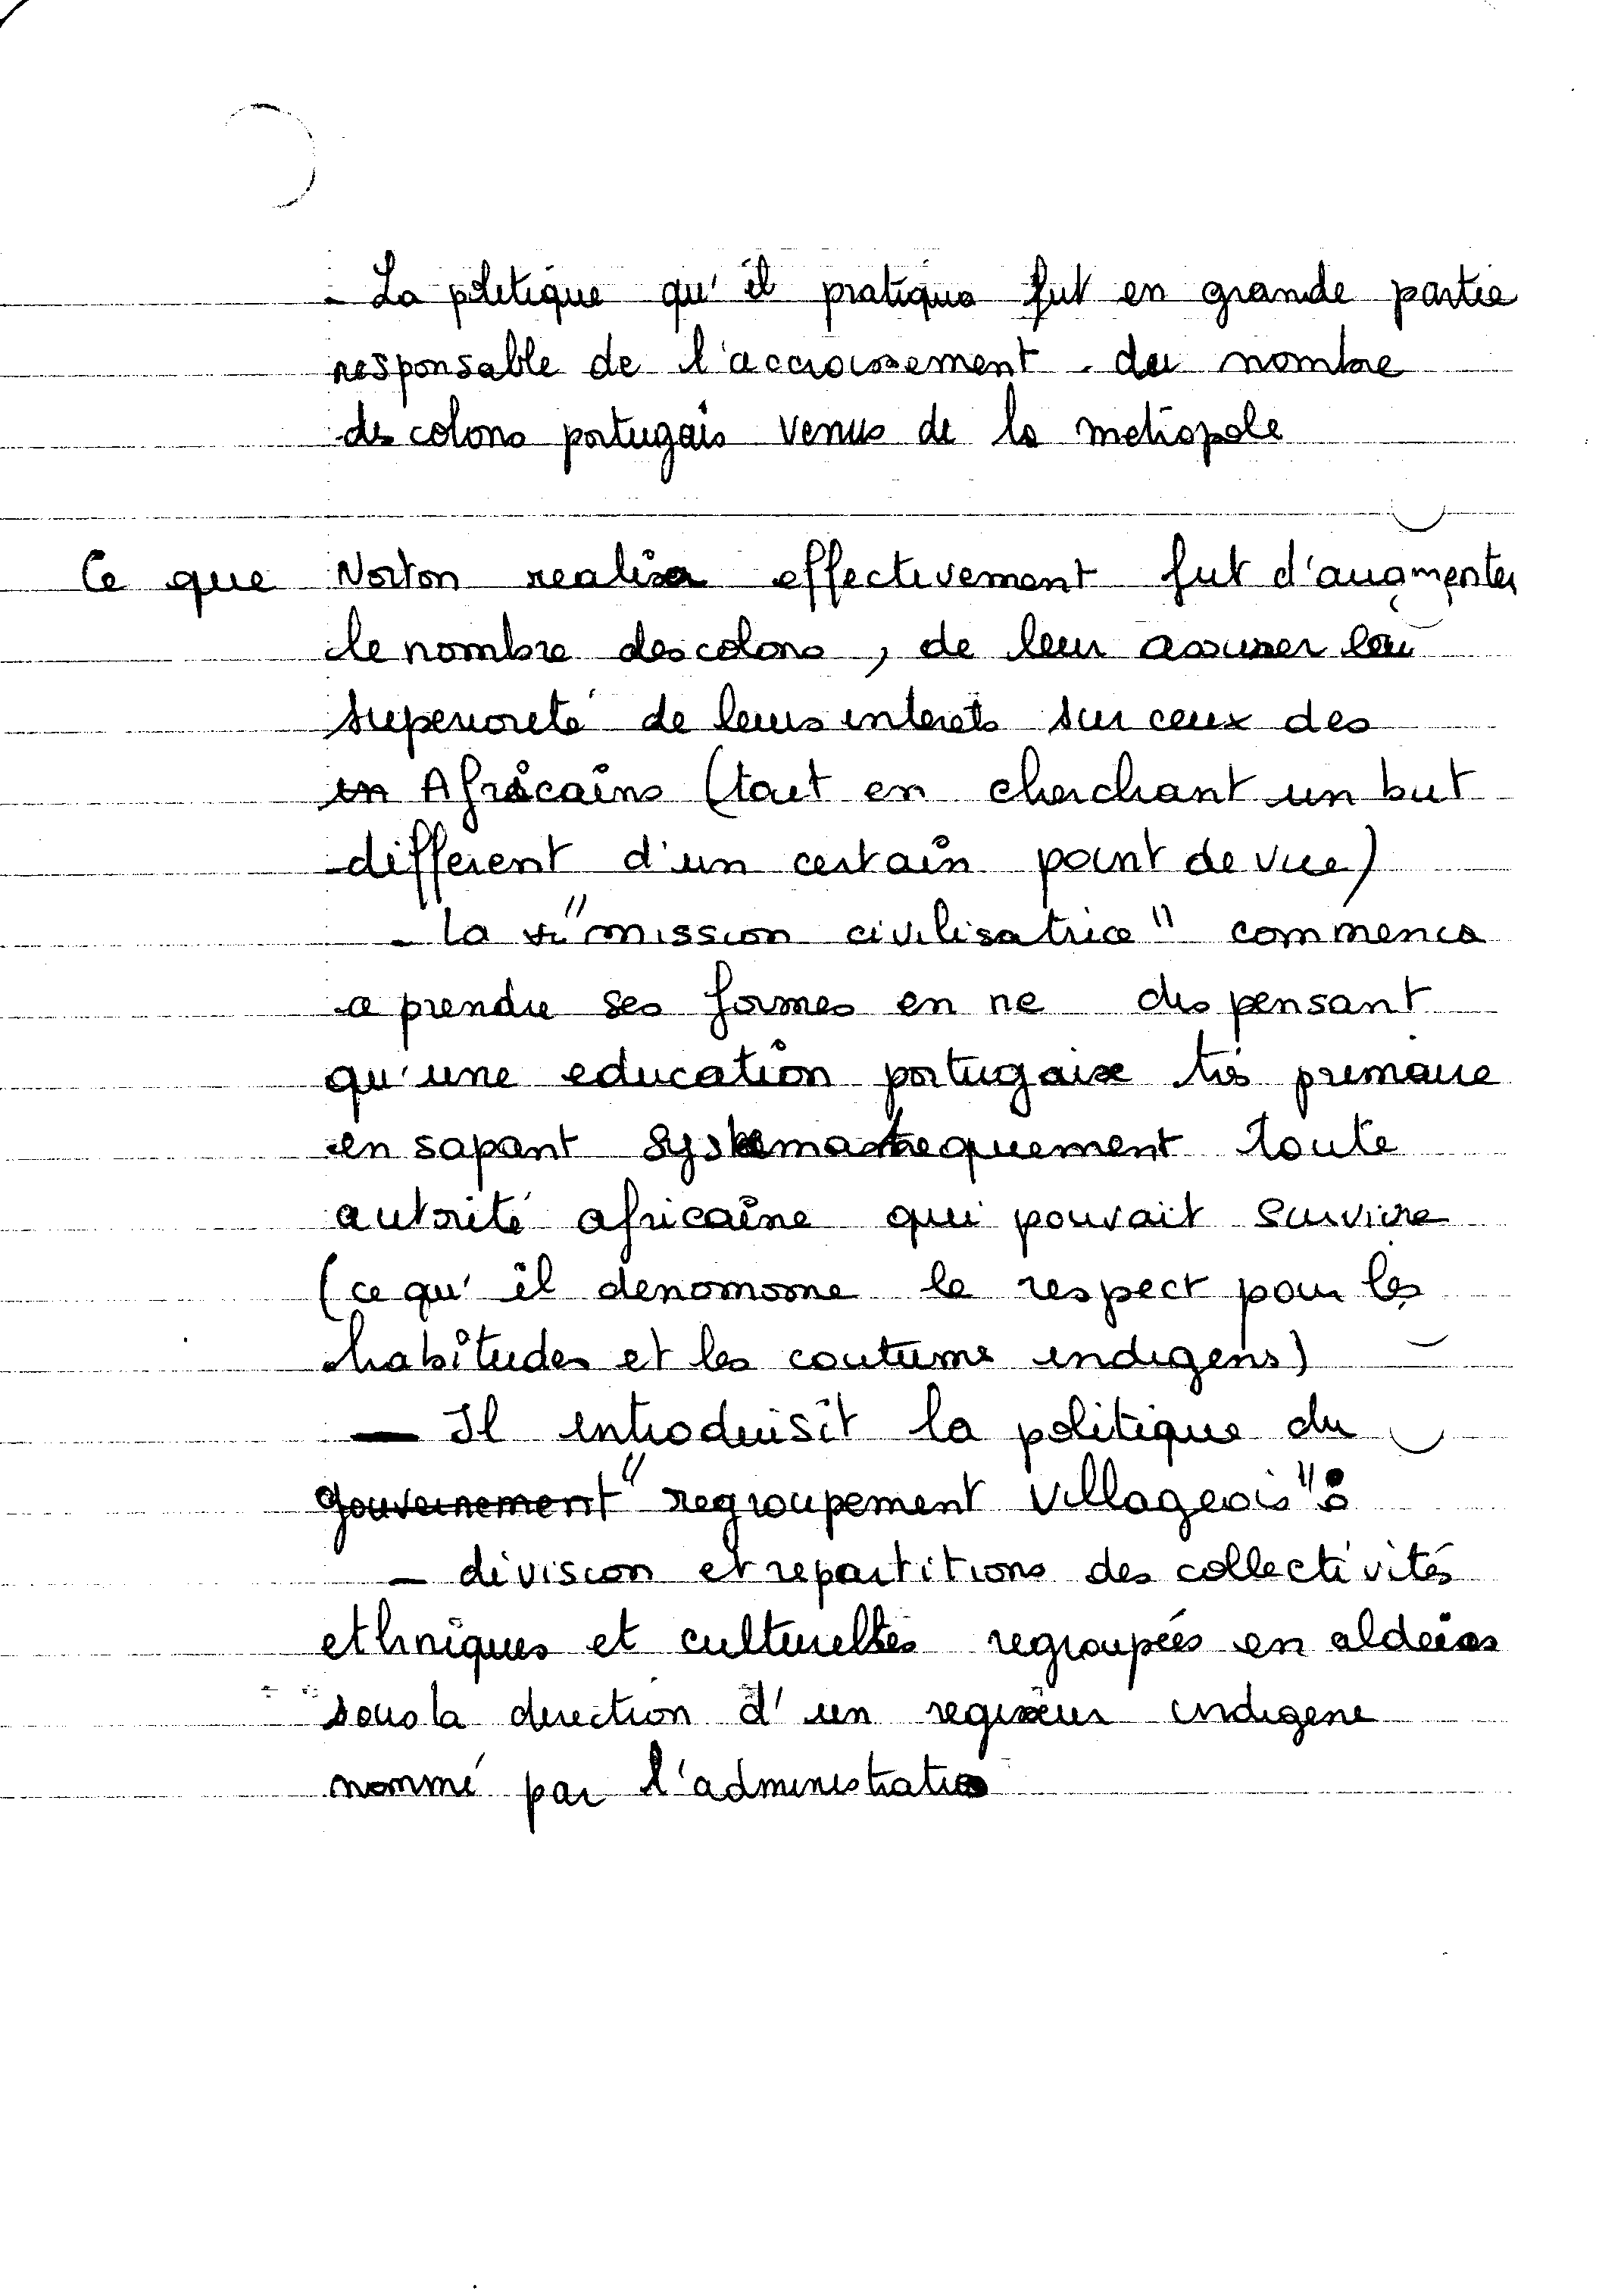 - La politique qu'il pratiqua fut en grande partie
responsable de l'accroissement du nombre
des colons portugais venus de la metropole
Ce que Norton realisa effectivement fut d'augmenter
le nombre des colons, de leur assurer la
superiorité de leurs interets sur ceux des
Africains (tout en cherchant un but
different d'un certain point de vue)
- La "mission civilisatrice" commenca
a prendre ses formes en ne dispensant
qu'une education portugaise très primaire
en sapant systematiquement toute
autorité africaine qui pouvait survivre
(ce qu'il denomome le respect pour les
habitudes et les coutums indigens)
- Il introduisit la politique du
gouvernement "regroupement villageois":
- division et repartitions des collectivités
ethniques et culturelles regroupées en aldeias
sous la direction d'un regisseur indigene
nommé par l'administratio